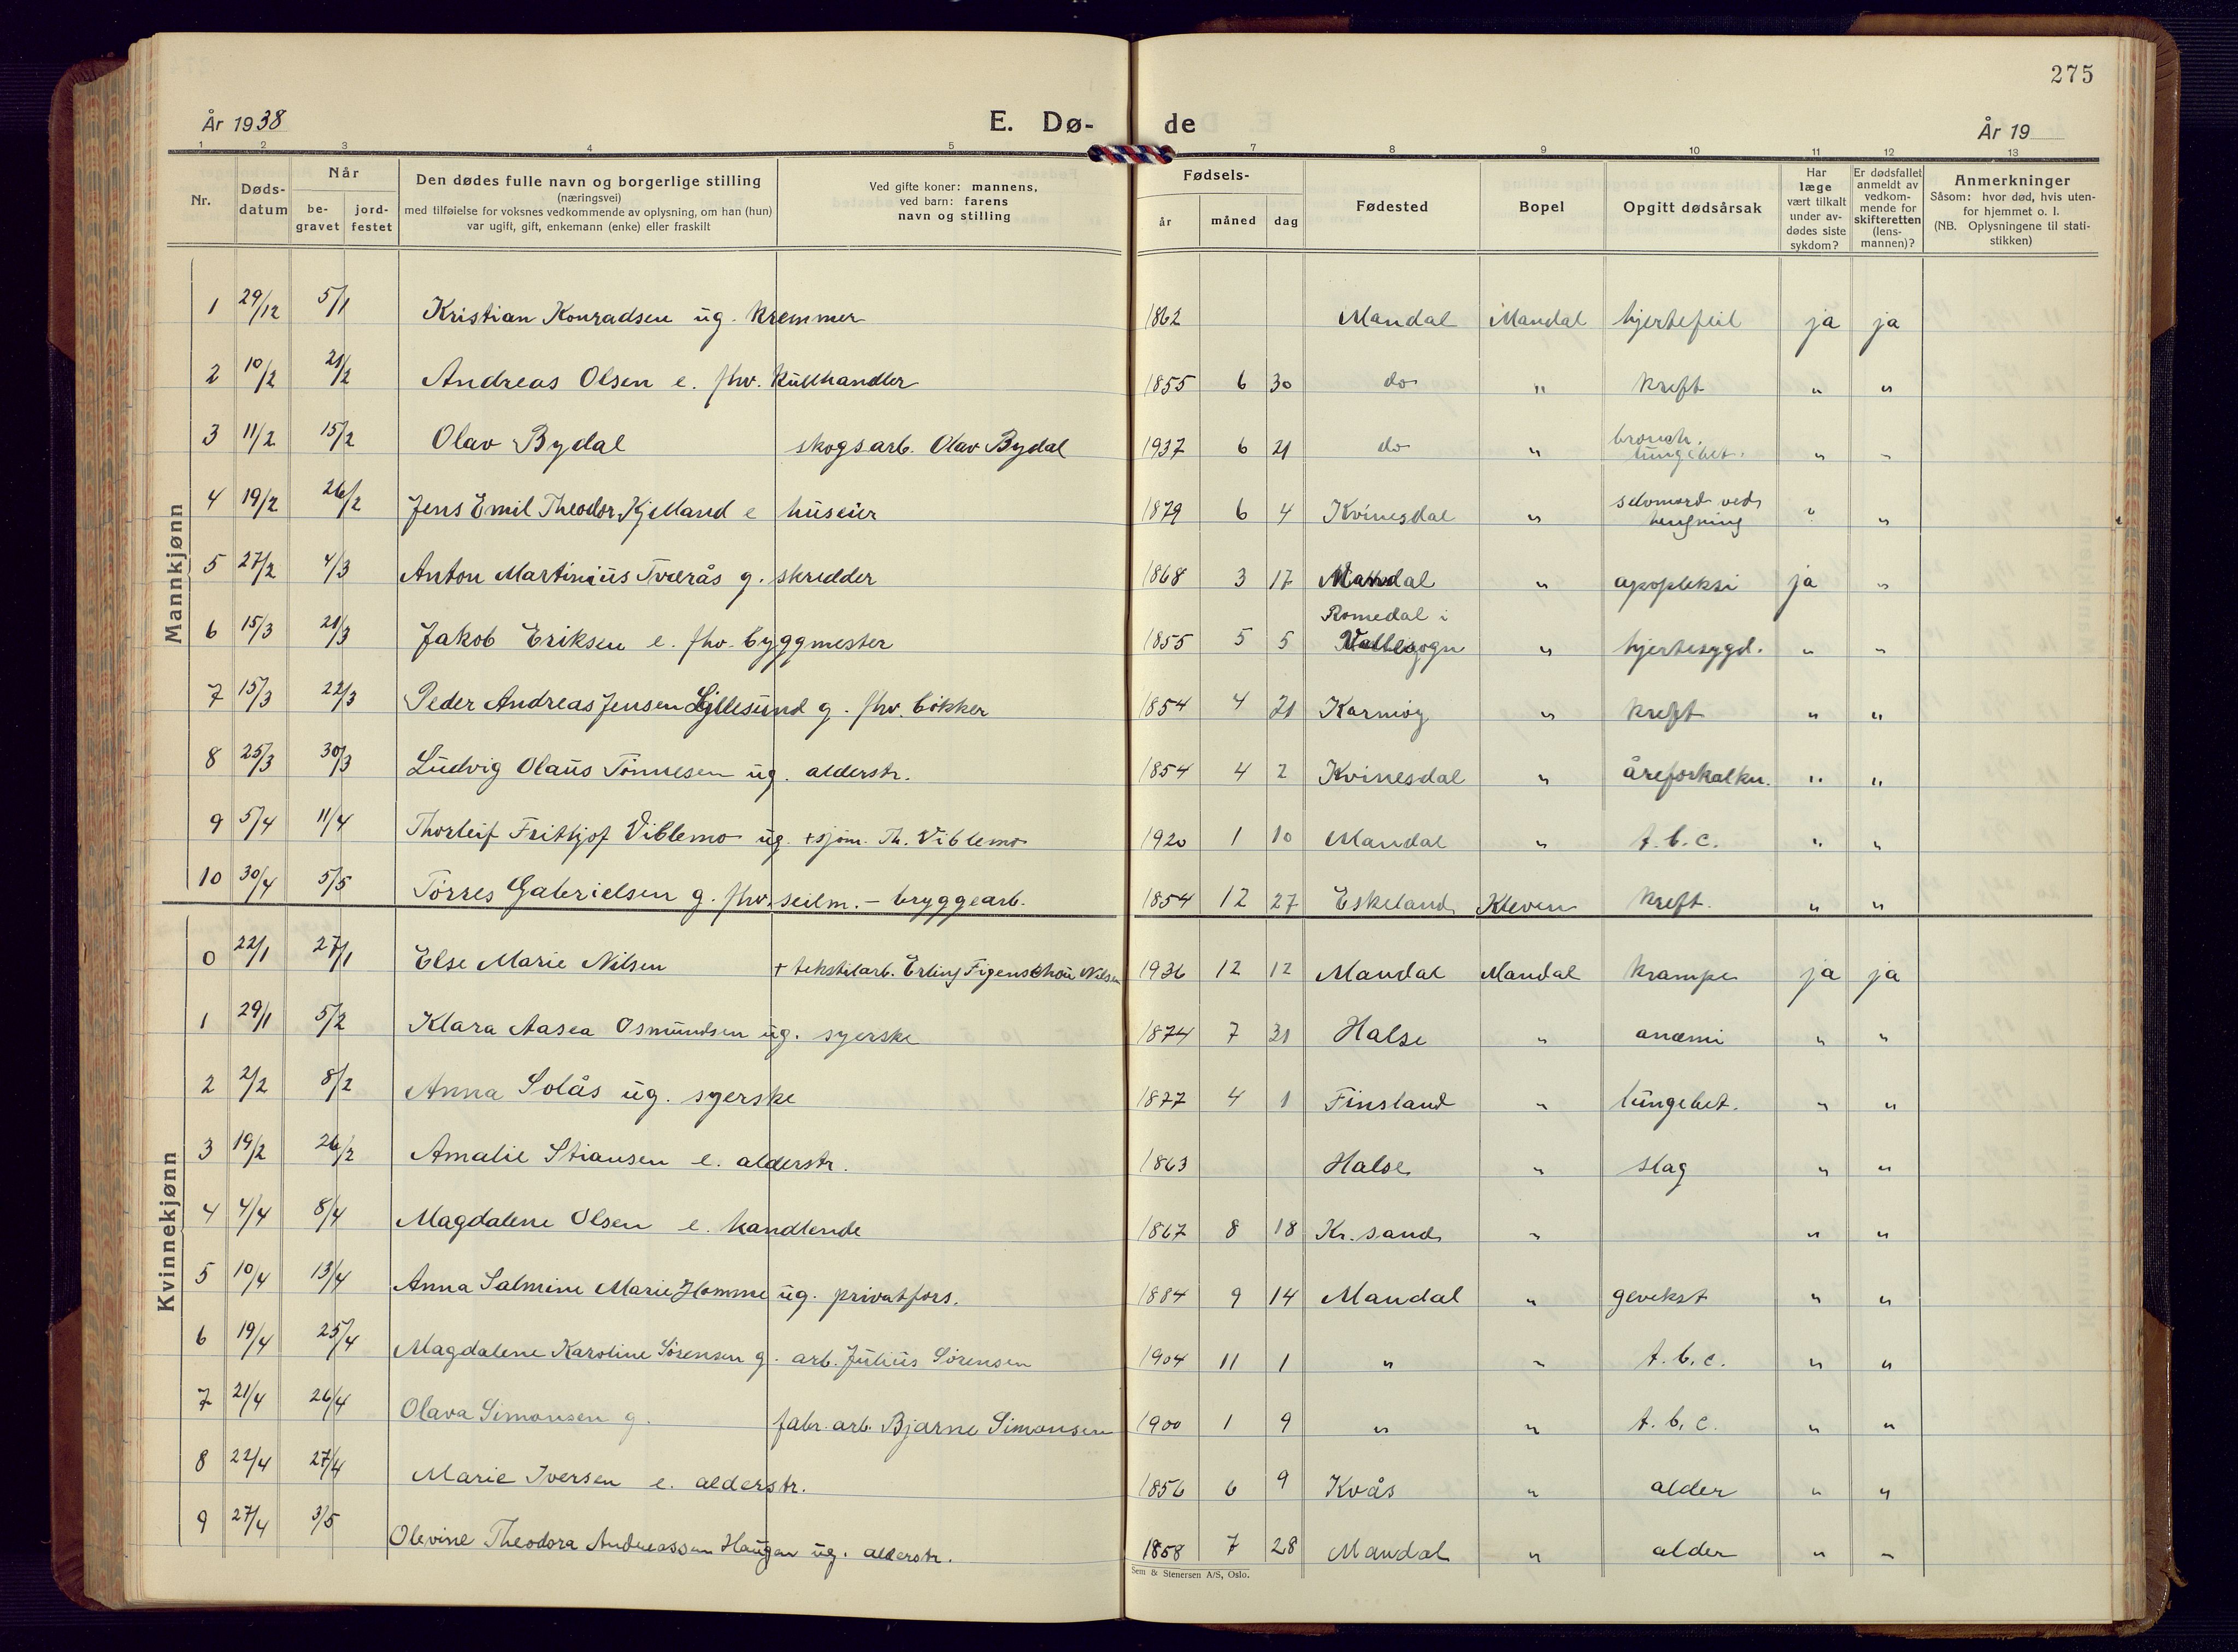 275
År 1938
E. Dø-
de
År 19
1 2 3 4 5 7 8 9 10 11 12 13
Nr.
Døds-
datum
Når
be-
gravet
jord-
festet
Den dødes fulle navn og borgerlige stilling
(næringsvei)
med tilføielse for voksnes vedkommende av oplysning, om han (hun)
var ugift, gift, enkemann (enke) eller fraskilt
Ved gifte koner: mannens,
ved barn: farens
navn og stilling
Fødsels-
år måned dag
Fødested
Bopel
Opgitt dødsårsak
Har
læge
vært tilkalt
under av-
dødes siste
sykdom?
Er dødsfallet
anmeldt av
vedkom-
mende for
skifteretten
(lens-
mannen)?
Anmerkninger
Såsom: hvor død, hvis uten-
for hjemmet o. l.
(NB. Oplysningene til stati-
stikken)
Mannkjønn
1 29/12 5/1 Kristian Konradsen ug. kremmer 1862 Mandal Mandal hjertefeil ja ja
2 10/2 21/2 Andreas Olsen e. fhv. kullhandler 1855 6 30 do " kreft " "
3 11/2 15/2 Olav Bydal skogsarb. Olav Bydal 1937 6 21 do " bronch. lungebet. " "
4 19/2 26/2 Jens Emil Theodor Kjelland e huseier 1879 6 4 Kvinesdal " selvmord ved hengning " "
5 27/2 4/3 Anton Martinius Tverås g. skredder 1868 3 17 Mandal " apopleksi ja "
6 15/3 21/3 Jakob Eriksen e. fhv. byggmester 1855 5 5 Romedal i Vallesogn " hjertesygd. " "
7 15/3 22/3 Peder Andreas Jensen Gjillesund g. fhv. bökker 1854 4 21 Karmöy " kreft " "
8 25/3 30/3 Ludvig Olaus Tönnesen ug. alderstr. 1854 4 2 Kvinesdal " åreforkalkn. " "
9 5/4 11/4 Thorleif Fritkjof Viblemo ug. + sjöm. Th. Viblemo 1920 1 10 Mandal " t.b.c. " "
10 30/4 5/5 Törres Gabrielsen g. fhv. seilm. - bryggearb. 1854 12 27 Eskeland Kleven kreft. " "
Kvinnekjønn
0 22/1 27/1 Else Marie Nilsen + tekstilarb. Erling Figenschou Nilsen 1936 12 12 Mandal Mandal krampe ja ja
1 29/1 5/2 Klara Aasea Osmundsen ug. syerske 1874 7 31 Halse " anæmi " "
2 2/2 8/2 Anna Solås ug. syerske 1877 4 1 Finsland " lungebet. " "
3 19/2 26/2 Amalie Stiansen e. alderstr. 1863 Halse " slag " "
4 4/4 8/4 Magdalene Olsen e. handlende 1867 8 18 Kr. sand " " "
5 10/4 13/4 Anna Salmine Marie Homme ug. privatfors. 1884 9 14 Mandal " gevekst " "
6 19/4 25/4 Magdalene Karoline Sörensen g. arb. Julius Sörensen 1904 11 1 " " t.b.c. " "
7 21/4 26/4 Olava Simonsen g. fabr. arb. Bjarne Simonsen 1900 1 9 " " t.b.c. " "
8 22/4 27/4 Marie Iversen e. alderstr. 1856 6 9 Kvås " alder " "
9 27/4 3/5 Olevine Theodora Andreassen Haugan ug. alderstr. 1858 7 28 Mandal " alder " "
Sem & Stenersen A/S, Oslo.